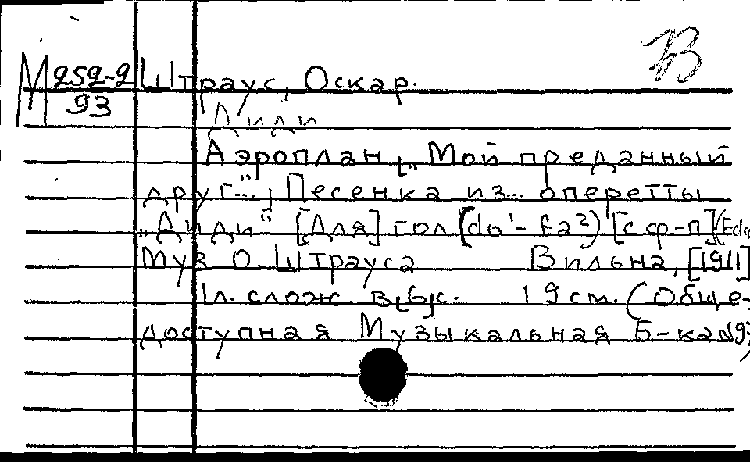 В
М 252-2 Штраус, Оскар.
93
Диди
Аэроплан [„Мой преданный
друг..."] Песенка из оперетты
„Диди" [Для] гол (do¹-fa²) [с ф-п]
Муз О. Штрауса Вильна, [1911]
1л. слож. в 19 см. (Обще-
доступная Музыкальная Б-ка №93)